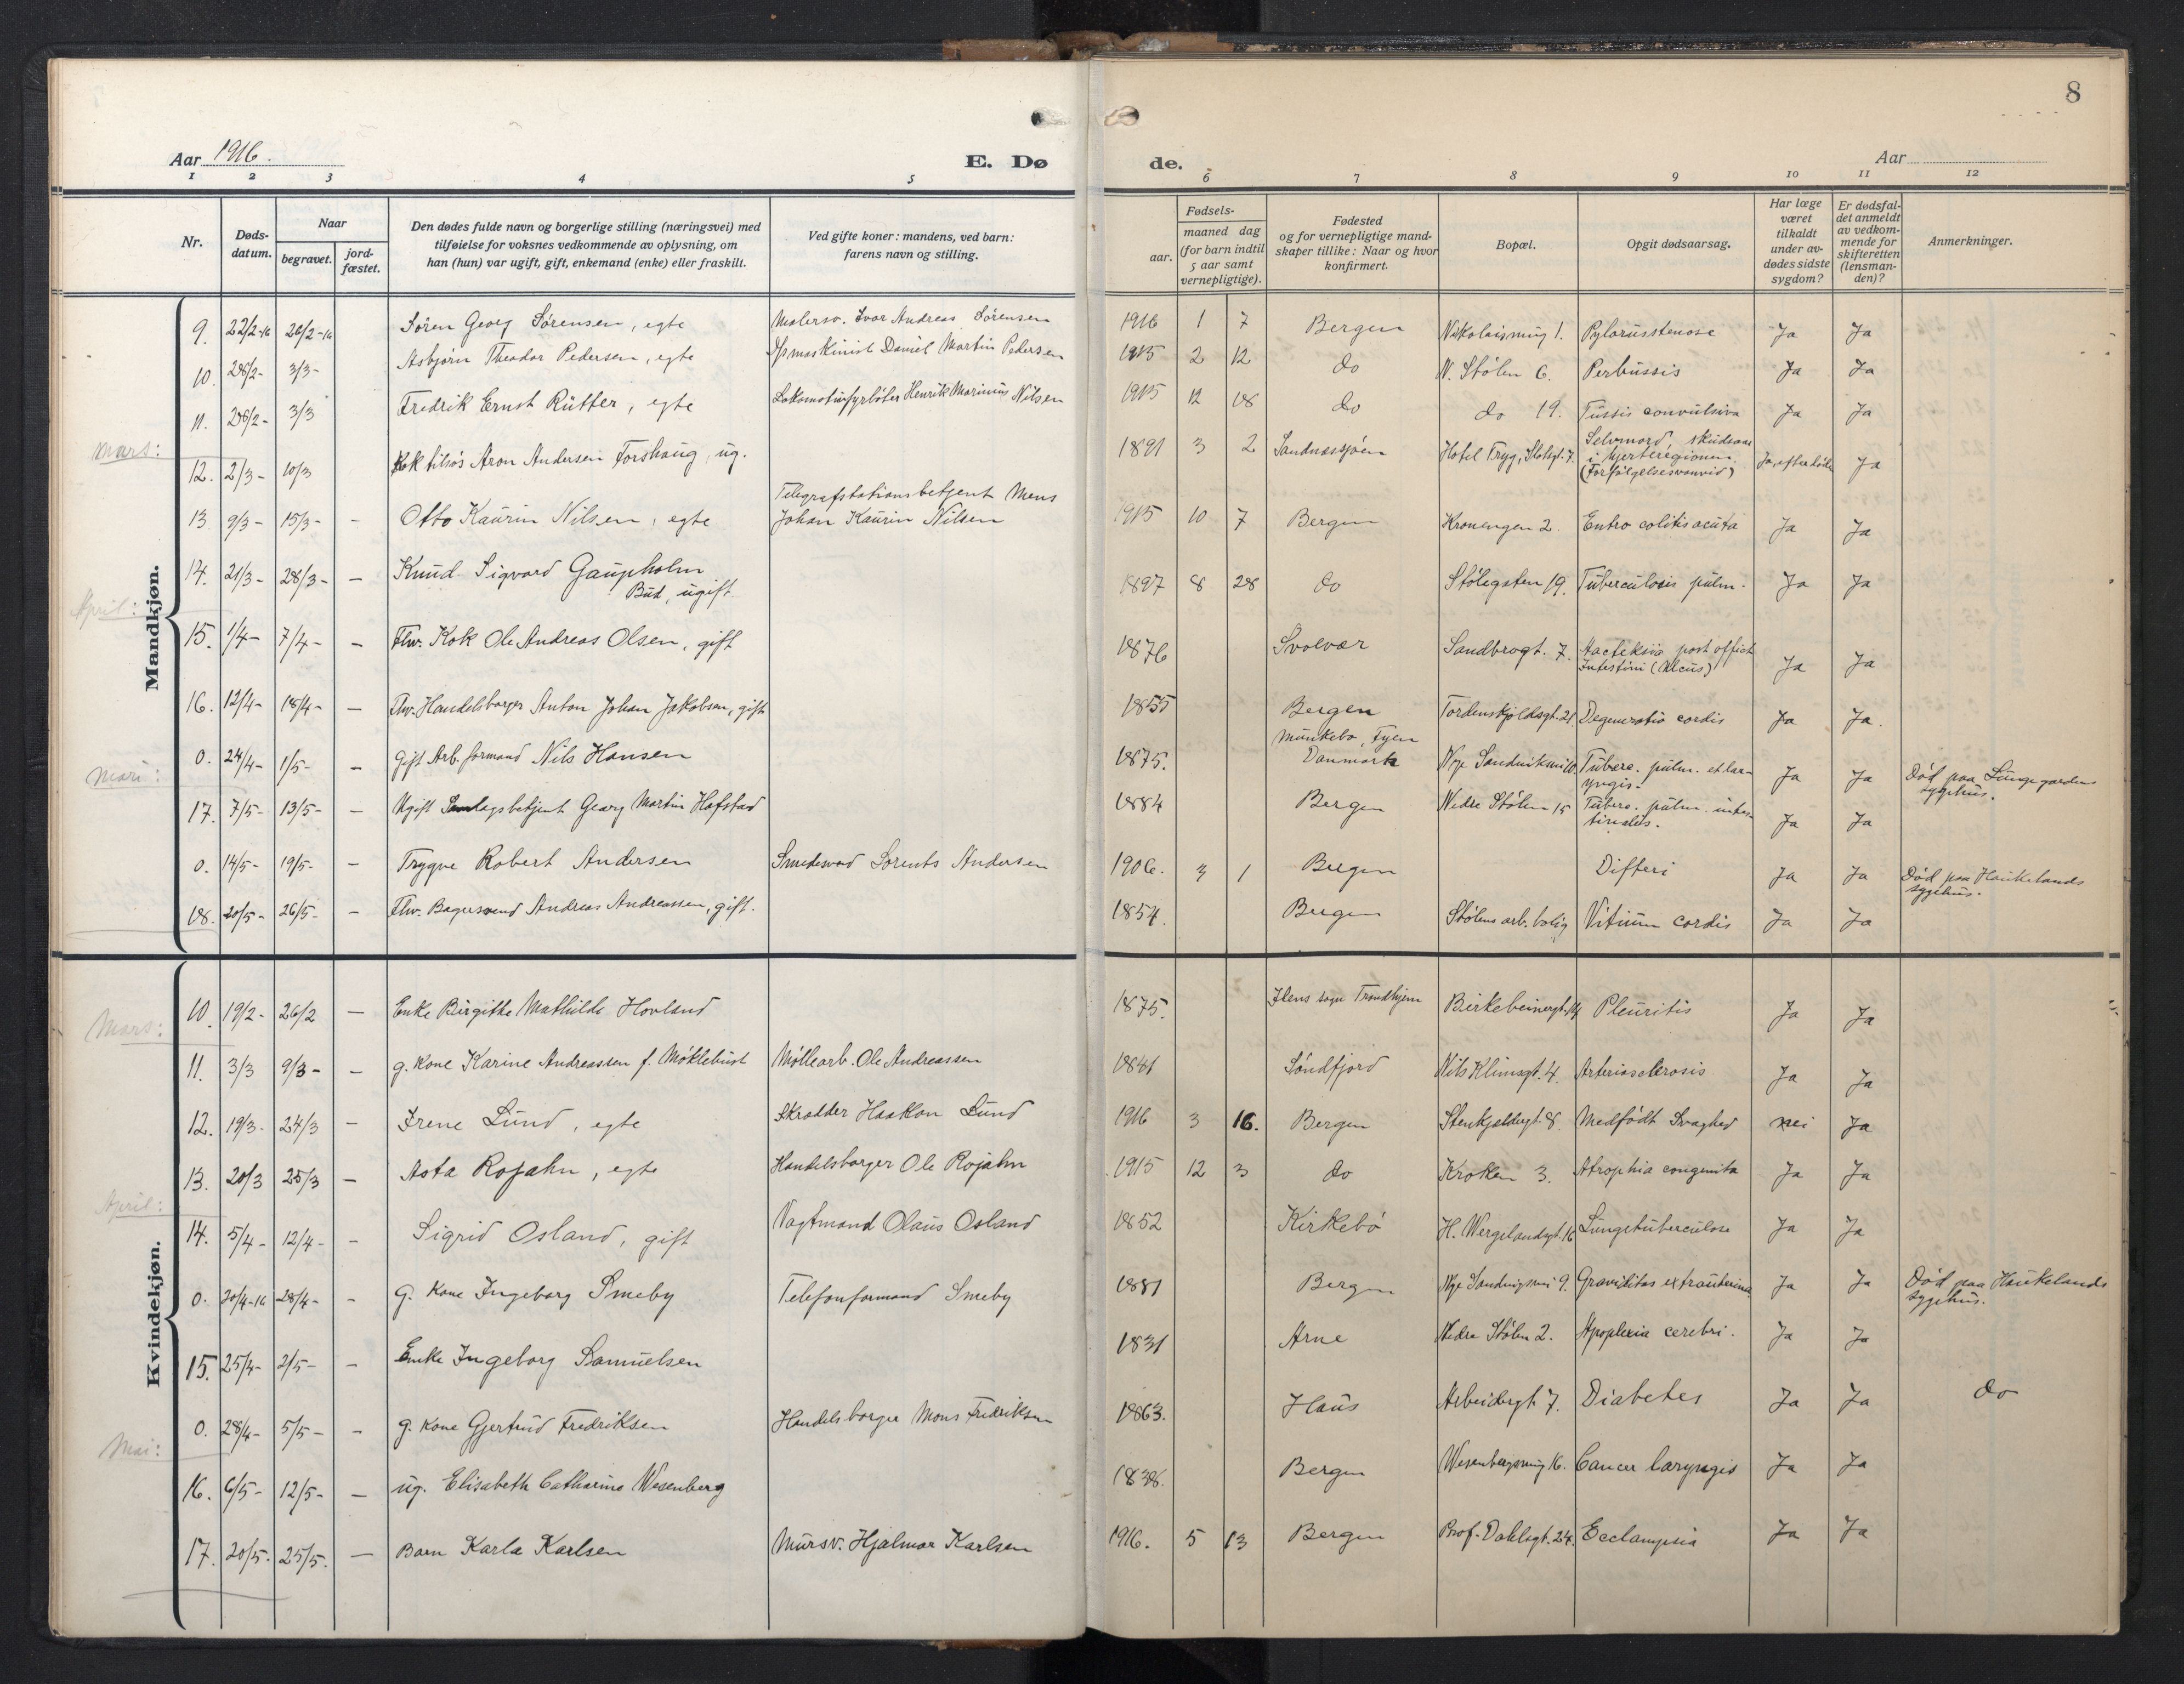 8
Aar 1916. E. Dø de. Aar
1 2 3 4 5 6 7 8 9 10 11 12
Nr. Døds-datum. Naar begravet. jord-fæstet. Den dødes fulde navn og borgerlige stilling (næringsvei) med tilføielse for voksnes vedkommende av oplysning, om han (hun) var ugift, gift, enkemand (enke) eller fraskilt. Ved gifte koner: mandens, ved barn: farens navn og stilling. Fødsels- aar. maaned dag (for barn indtil 5 aar samt vernepligtige). Fødested og for vernepligtige mandskaper tillike: Naar og hvor konfirmert. Bopæl. Opgit dødsaarsag. Har læge været tilkaldt under avdødes sidste sygdom? Er dødsfaldet anmeldt av vedkommende for skifteretten (lensmanden)? Anmerkninger.
Mandkjøn.
9. 22/2-16 26/2-16 Søren Georg Sørensen, egte Malersv. Ivar Andreas Sørensen 1916 1 7 Bergen Nikolaismug 1. Pylorusstenose Ja Ja
10. 28/2- 3/3- Asbjørn Theodor Pedersen, egte Dpsmaskinist Daniel Martin Pedersen 1915 2 12 do N. Stølen 6. Perbussis Ja Ja
11. 28/2- 3/3 Fredrik Ernst Rütter, egte Lokomotivfyrbøter Henrik Marinius Nilsen 1915 12 18 do do 19. Tussis convulsiva Ja Ja
Mars:
12. 2/3- 10/3 Kok tilsjøs Aron Andersen Forshaug, ug. 1891 3 2 Sandnessjøen Hotel Tryg, Slotsgt. 7. Selvmord, skudsaar i hjerteregionen (Forfølgelsesvanvid) Ja, efter døden Ja
13 9/3- 15/3- - Otto Kaurin Nilsen, egte Telegrafstationsbetjent Mens Johan Kaurin Nilsen 1915 10 7 Bergen Kronengen 2. Entro colitis acuta Ja Ja
14. 21/3- 28/3- - Knud Sigvard Gaupholm Bud, ugift 1897 8 28 do Stølegaten 19. Tuberculosis pulm. Ja Ja
April:
15. 1/4- 7/4- - Fhv. Kok Ole Andreas Olsen, gift 1876 Svolvær Sandbrogt. 7. post Intestini (Ulcus) Ja Ja
16. 12/4- 18/4- - Fhv. Handelsborger Anton Johan Jakobsen, gift 1855 Bergen Tordenskjoldsgt. 21 Degeneratio cordis Ja Ja.
0. 24/4- 1/5- - Gift Arb. formand Nils Hansen 1875. Munkebo, Fyen Danmark Nye Sandviksvei 10. Tuberc. pulm. et laryngis. Ja Ja Død paa Lungegaardens sygehus.
Mai:
17. 7/5- 13/5- - Ugift betjent Georg Martin Hafstad 1884 Bergen Nedre Stølen 15 Tuberc. pulm. intestinalis. Ja Ja
0. 14/5- 19/5- - Trygve Robert Andersen Smedesvend Lorents Andersen 1906. 3 1 Bergen Difteri Ja Ja Død paa Haukelands sygehus.
18. 20/5- 26/5- - Fhv. Bagersvend Andreas Andreassen, gift. 1854. Bergen Stølens arb. bolig Vitium cordis Ja Ja
Kvindekjøn.
10. 19/2- 26/2 - Enke Birgithe Mathilde Hovland 1875. Ilens sogn Trondhjem Birkebeinergt. 14 Pleuritis Ja Ja
Mars:
11. 3/3 9/3- - g. Kone Karine Andreassen f. Møklebust Møllearb. Ole Andreassen 1841 Søndfjord Nils Klimsgt. 4. Arteriosclerosis Ja Ja
12. 19/3- 24/3 - Irene Lund, egte Skrædder Haakon Lund 1916 3 16. Bergen Stenkjeldergt. 8. Medfødt Svaghed nei Ja
13. 20/3 25/3 - Asta Rojahn, egte Handelsborger Ole Rojahn 1915 12 3 do Kroken 3. Atrophia congenita Ja Ja
April:
14. 5/4- 12/4- - Sigrid Osland, gift Vagtmand Olaus Osland 1852 Kirkebø H. Wergelandsgt. 16 Lungetuberculose Ja Ja
0. 20/4-16 28/4- - g. Kone Ingeborg Smeby Telefonformand Smeby 1881 Bergen Nye Sandvigsvei 9. Graviditas extrauterina Ja Ja Død paa Haukelands sygehus.
15. 25/4- 2/5- - Enke Ingeborg Samuelsen 1831 Arne Nedre Stølen 2. Apoplexia cerebri. Ja Ja
0. 28/4- 5/5- - g. Kone Gjertrud Fredriksen Handelsborger Mons Fredriksen 1863. Haus Arbeidergt. 7. Diabetes Ja Ja do
Mai:
16. 6/5- 12/5- - ug. Elisabeth Catharina Wesenberg 1838. Bergen Wesenbergsmug 16. Cancer laryngis Ja Ja
17. 20/5. 25/5. - Barn Karla Karlsen Mursv. Hjalmar Karlsen 1916. 5 13 Bergen Prof. Dahlsgt. 24. Ecclampsia Ja Ja